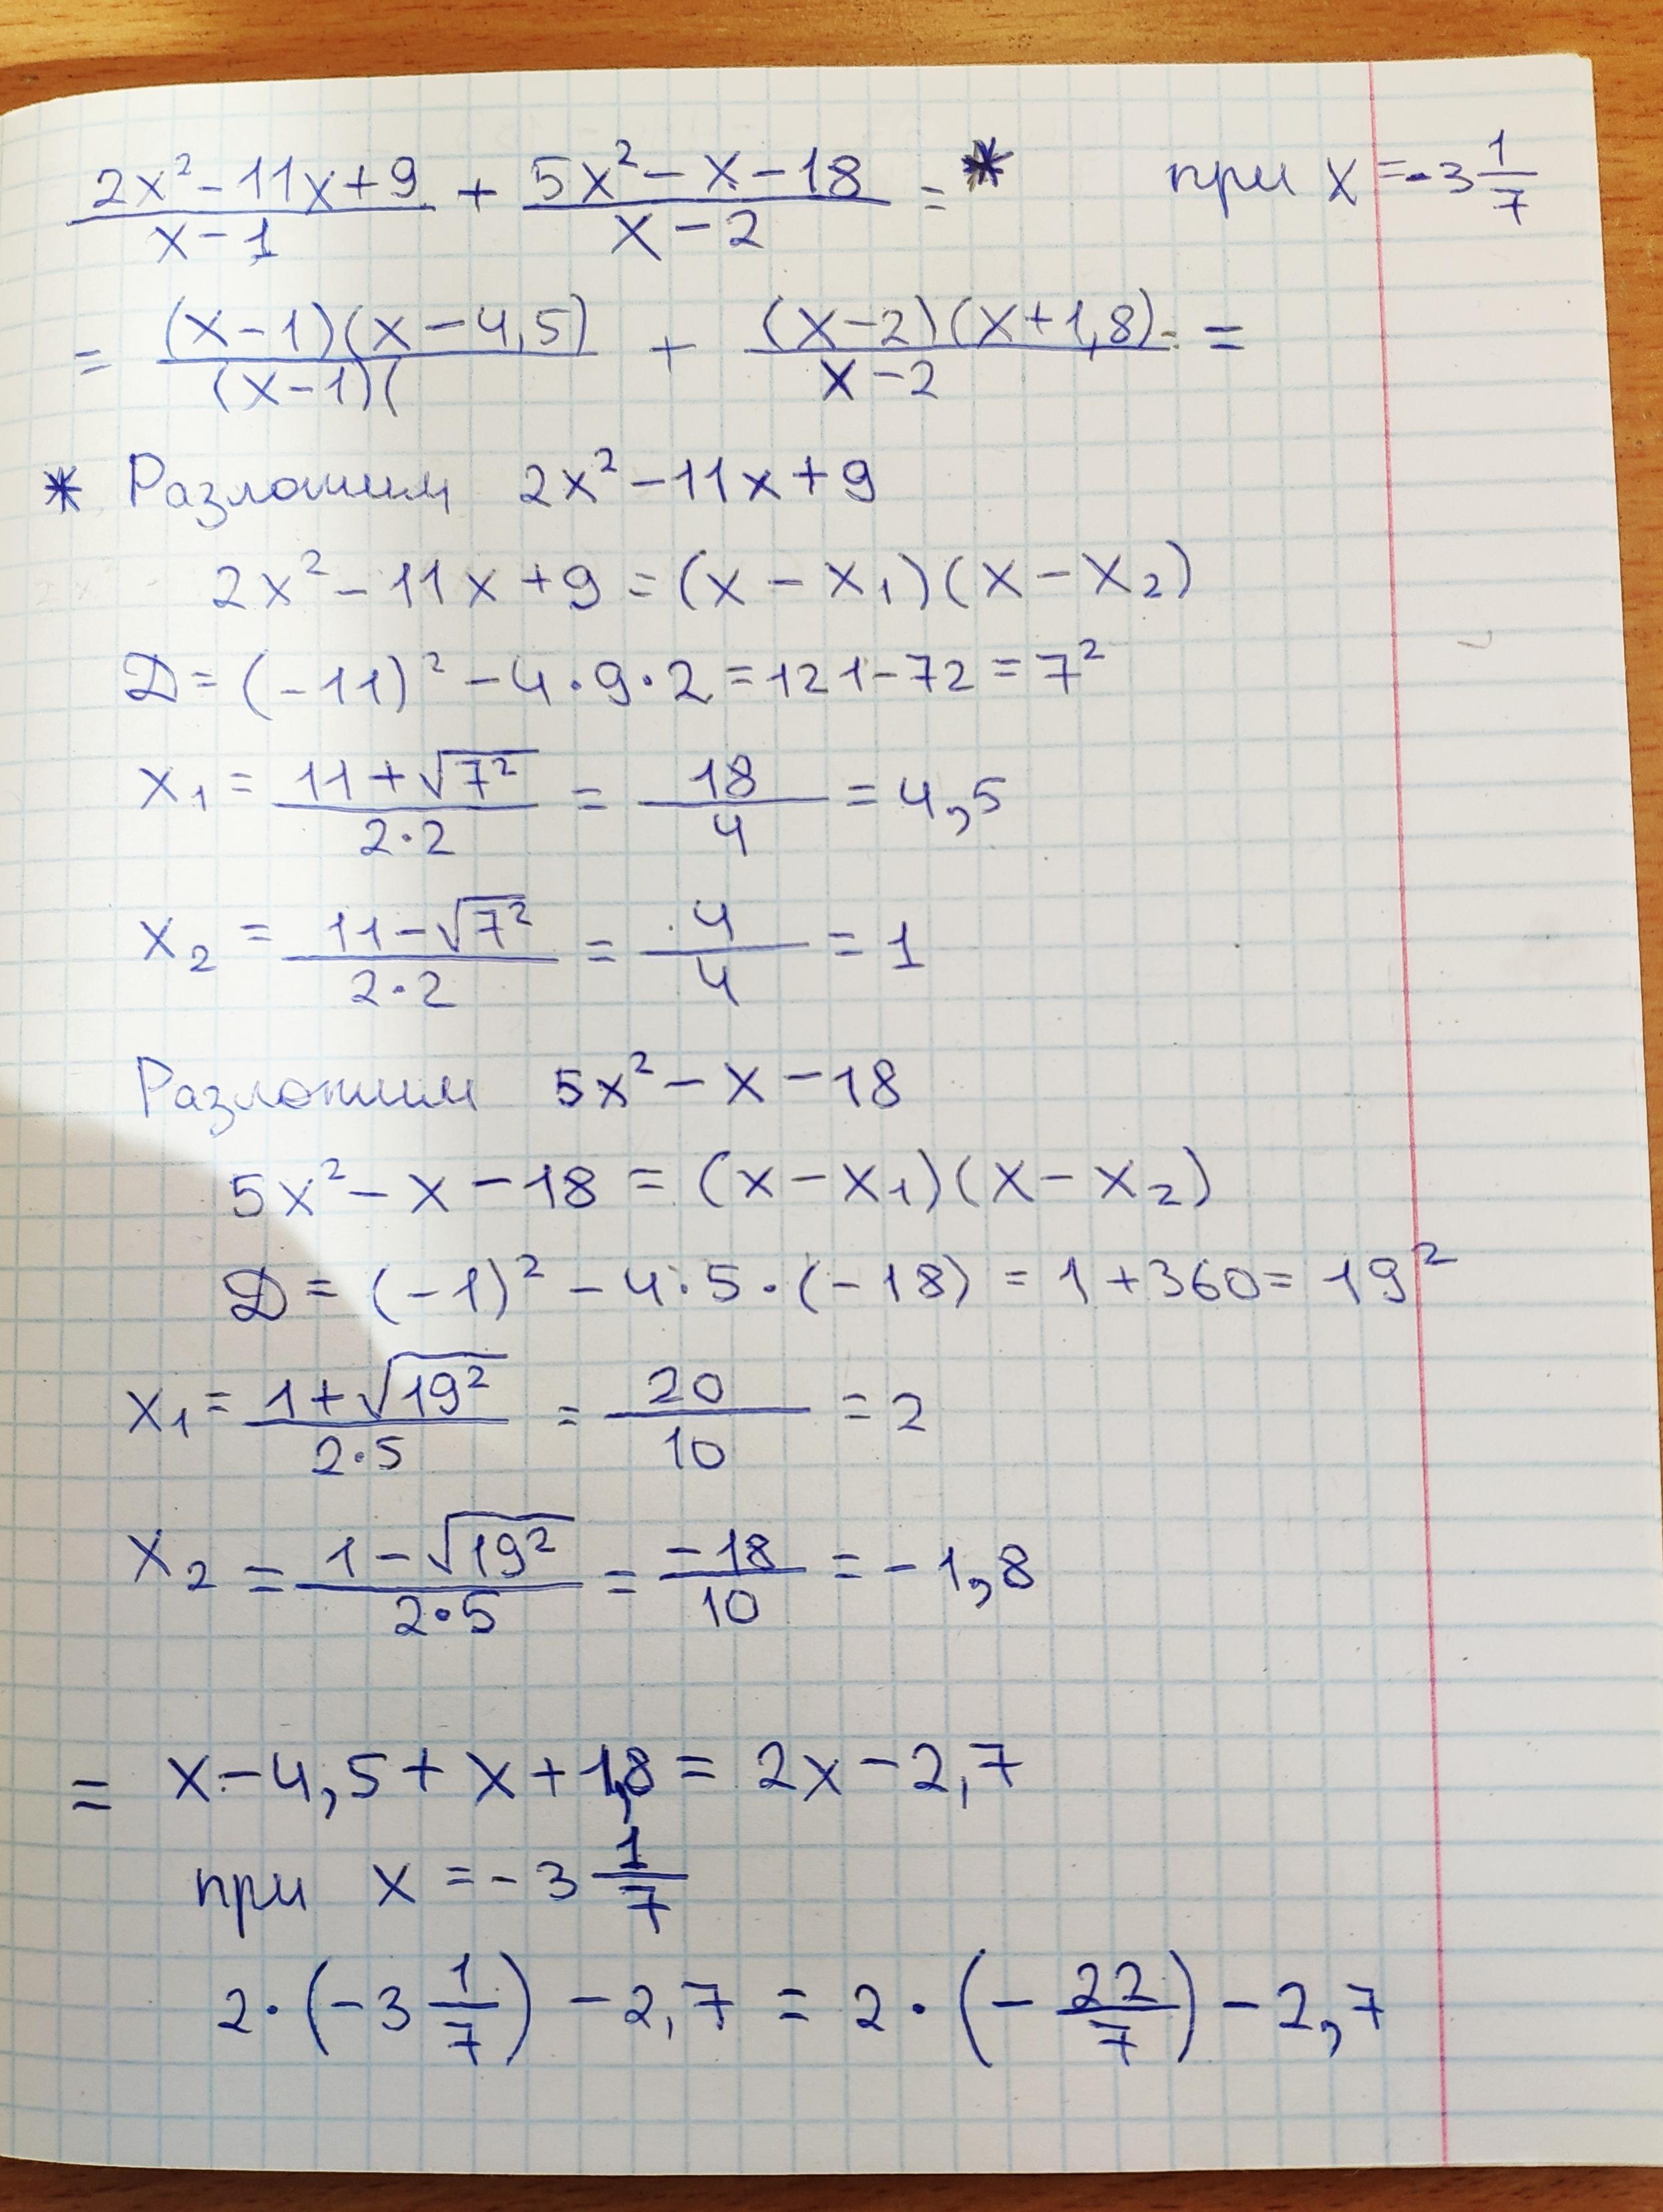 (2x² - 11x + 9)/(x - 1) + (5x² - x - 18)/(x - 2) = * при x = -3 1/7
= (x - 1)(x - 4,5)/(x - 1)( + (x - 2)(x + 1,8)/(x - 2) =
* Разложим 2x² - 11x + 9
2x² - 11x + 9 = (x - x₁)(x - x₂)
D = (-11)² - 4 · 9 · 2 = 121 - 72 = 7²
x₁ = (11 + √7²)/(2·2) = 18/4 = 4,5
x₂ = (11 - √7²)/(2·2) = 4/4 = 1
Разложим 5x² - x - 18
5x² - x - 18 = (x - x₁)(x - x₂)
D = (-1)² - 4 · 5 · (-18) = 1 + 360 = 19²
x₁ = (1 + √19²)/(2·5) = 20/10 = 2
x₂ = (1 - √19²)/(2·5) = -18/10 = -1,8
= x - 4,5 + x + 1,8 = 2x - 2,7
при x = -3 1/7
2 · (-3 1/7) - 2,7 = 2 · (-22/7) - 2,7